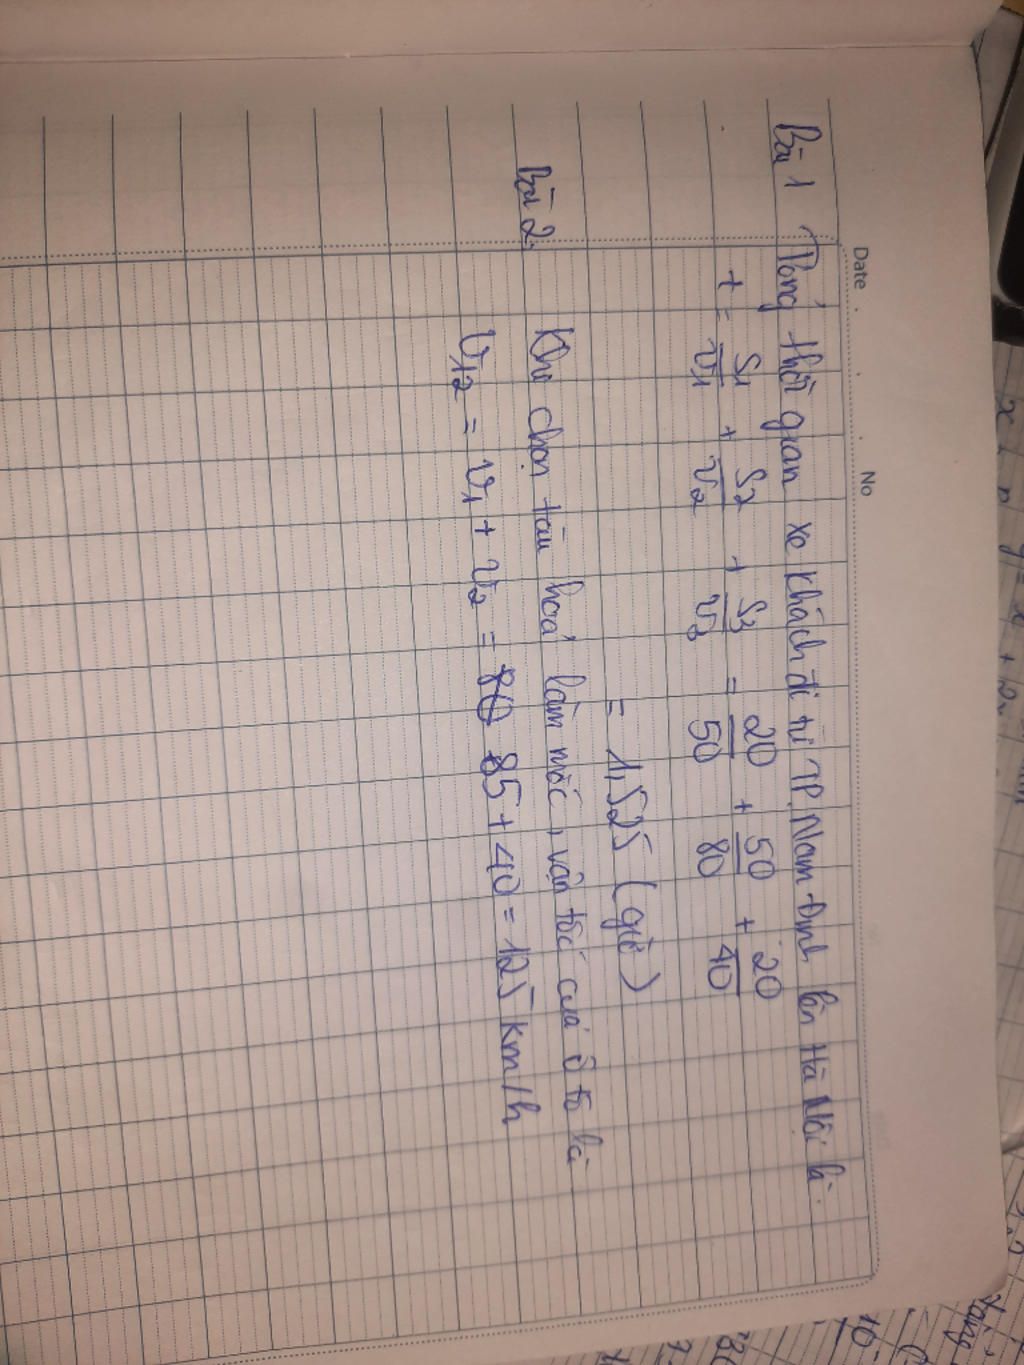 Date . . . No
Bài 1 Tổng thời gian xe khách đi từ TP. Nam Định lên Hà Nội là.
t = S1/v1 + S2/v2 + S3/v3 = 20/50 + 50/80 + 20/40
= 1,525 (giờ)
Bài 2,
Khi chọn tàu hoả làm mốc, vận tốc của ô tô là
v12 = v1 + v2 = 85 + 40 = 125 km/h